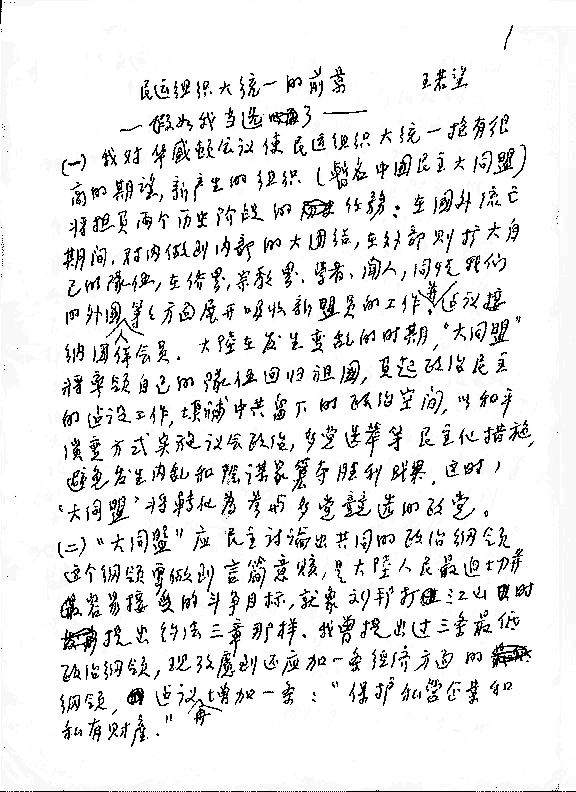 1
民运组织大统一的前景 王若望
— 假如我当选了 —
(一) 我对华盛顿会议使民运组织大统一抱有很
高的期望,新产生的组织(暂名中国民主大同盟)
将担负两个历史阶段的任務:在國外流亡
期间,对内做到内部的大团结,在外部则扩大自
己的隊伍,在侨界、宗教界、学者、闻人,同情我们
的外國人等各方面展开吸收新盟员的工作,并建议接
纳團体会员。大陸在发生变乱的时期,“大同盟”
将率领自己的隊伍回归祖國,負起政治民主
的建设工作,填補中共留下的政治空间,以和平
演变方式实施议会政治,多党选举等民主化措施,
避免发生内乱和陰谋家篡夺胜利战果,这时,
“大同盟”将转化為参加多党競选的政党。
(二)“大同盟”应民主讨論出共同的政治纲领
这个纲领要做到言简意赅,是大陸人民最迫切并
最容易接受的斗争目标,就象刘邦打江山时
提出约法三章那样。我曾提出过三条最低
政治纲领,现攷慮到还应加一条经济方面的
纲领,建议再增加一条:“保护私营企業和
私有财產。”